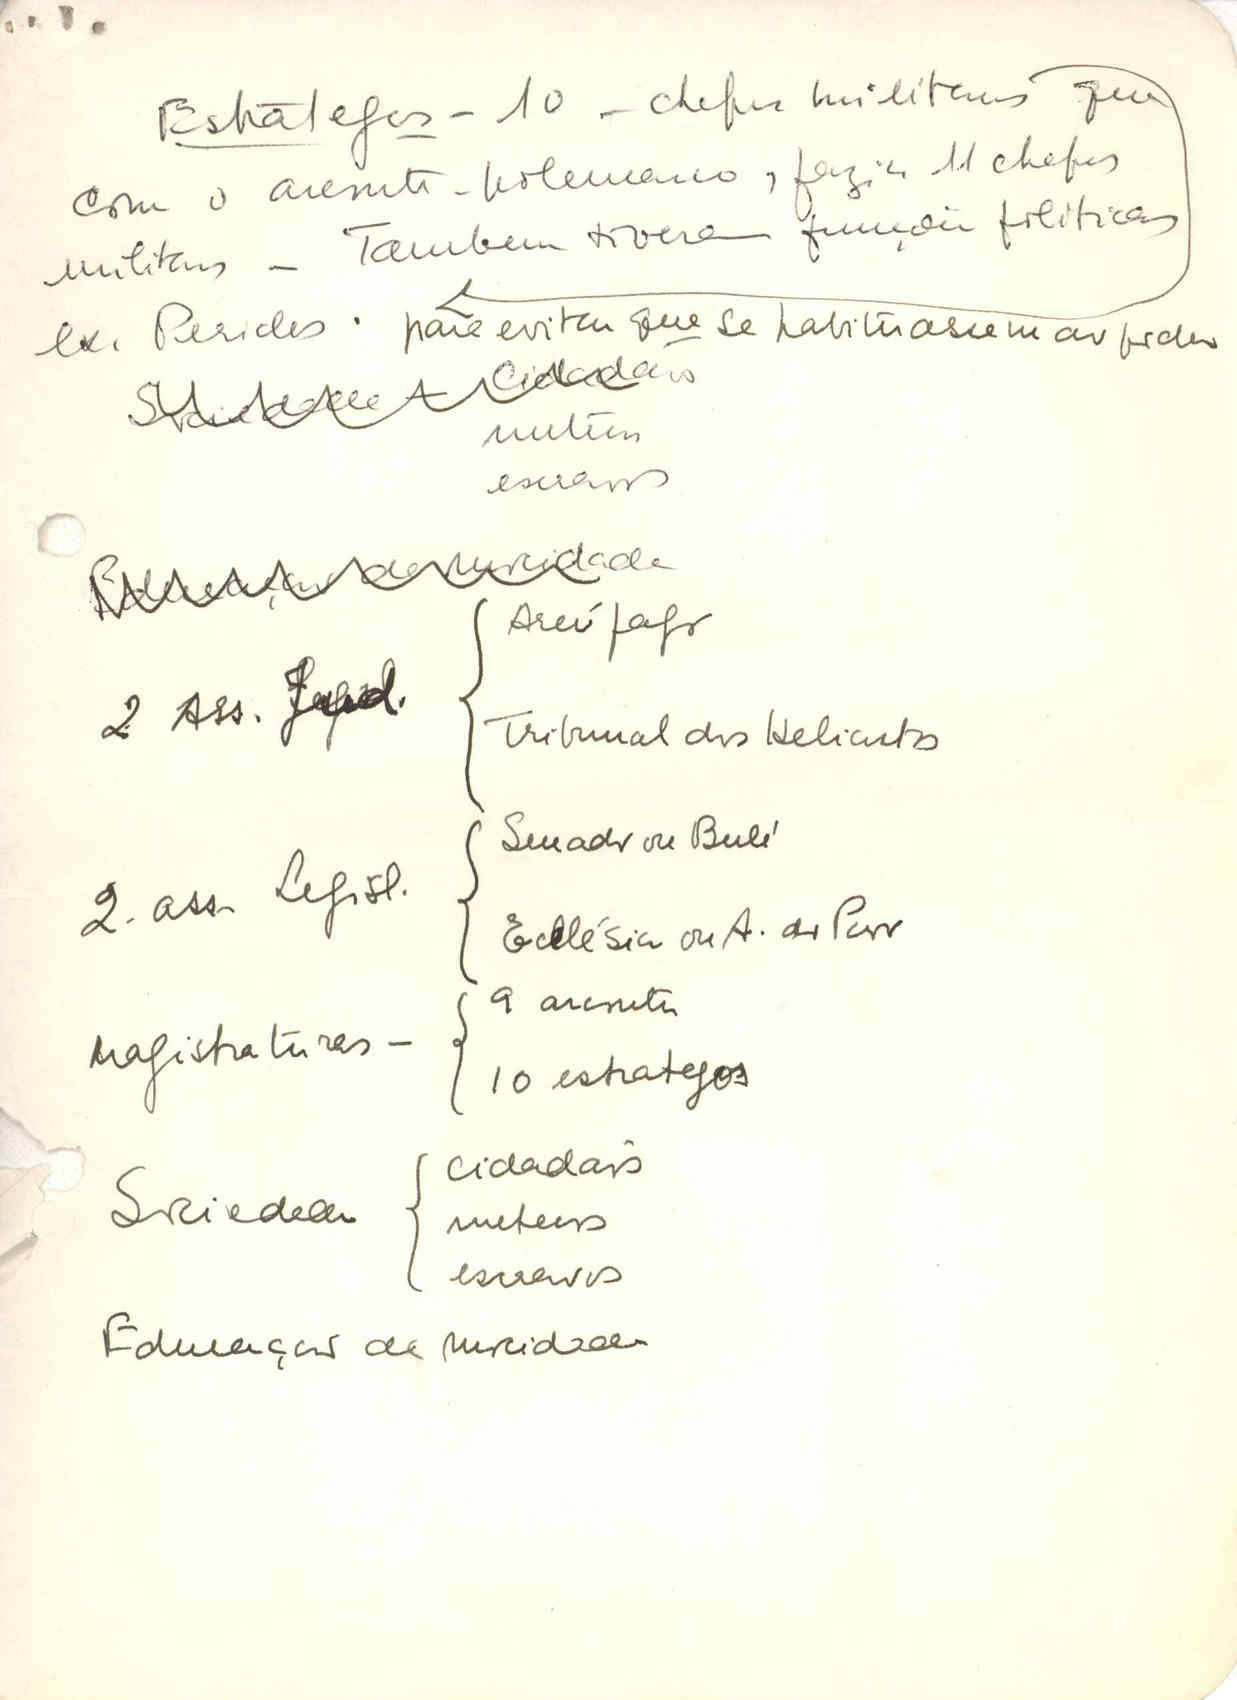 Estrategos - 10 - chefes militares que
com o arconte-polemarco, fazia 11 chefes
militares - Tambem tiveram funções políticas
ex. Pericles . para evitar que se habituassem ao poder
Sociedade - Cidadãos
metecos
escravos
Educação da mocidade
Areópago
2 Ass.
Tribunal dos Heliastas
Senado ou Bulé
2. ass. Legisl.
Ecclésia ou A. do Povo
9 arcontes
Magistraturas -
10 estrategos
cidadãos
Sociedade
metecos
escravos
Educação da mocidade